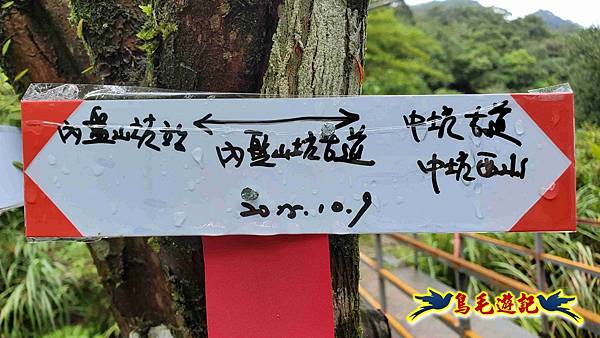 內盤山坑訖
內盤山坑古道
中坑古道
中坑西山
2025.10.9
鳥毛遊記